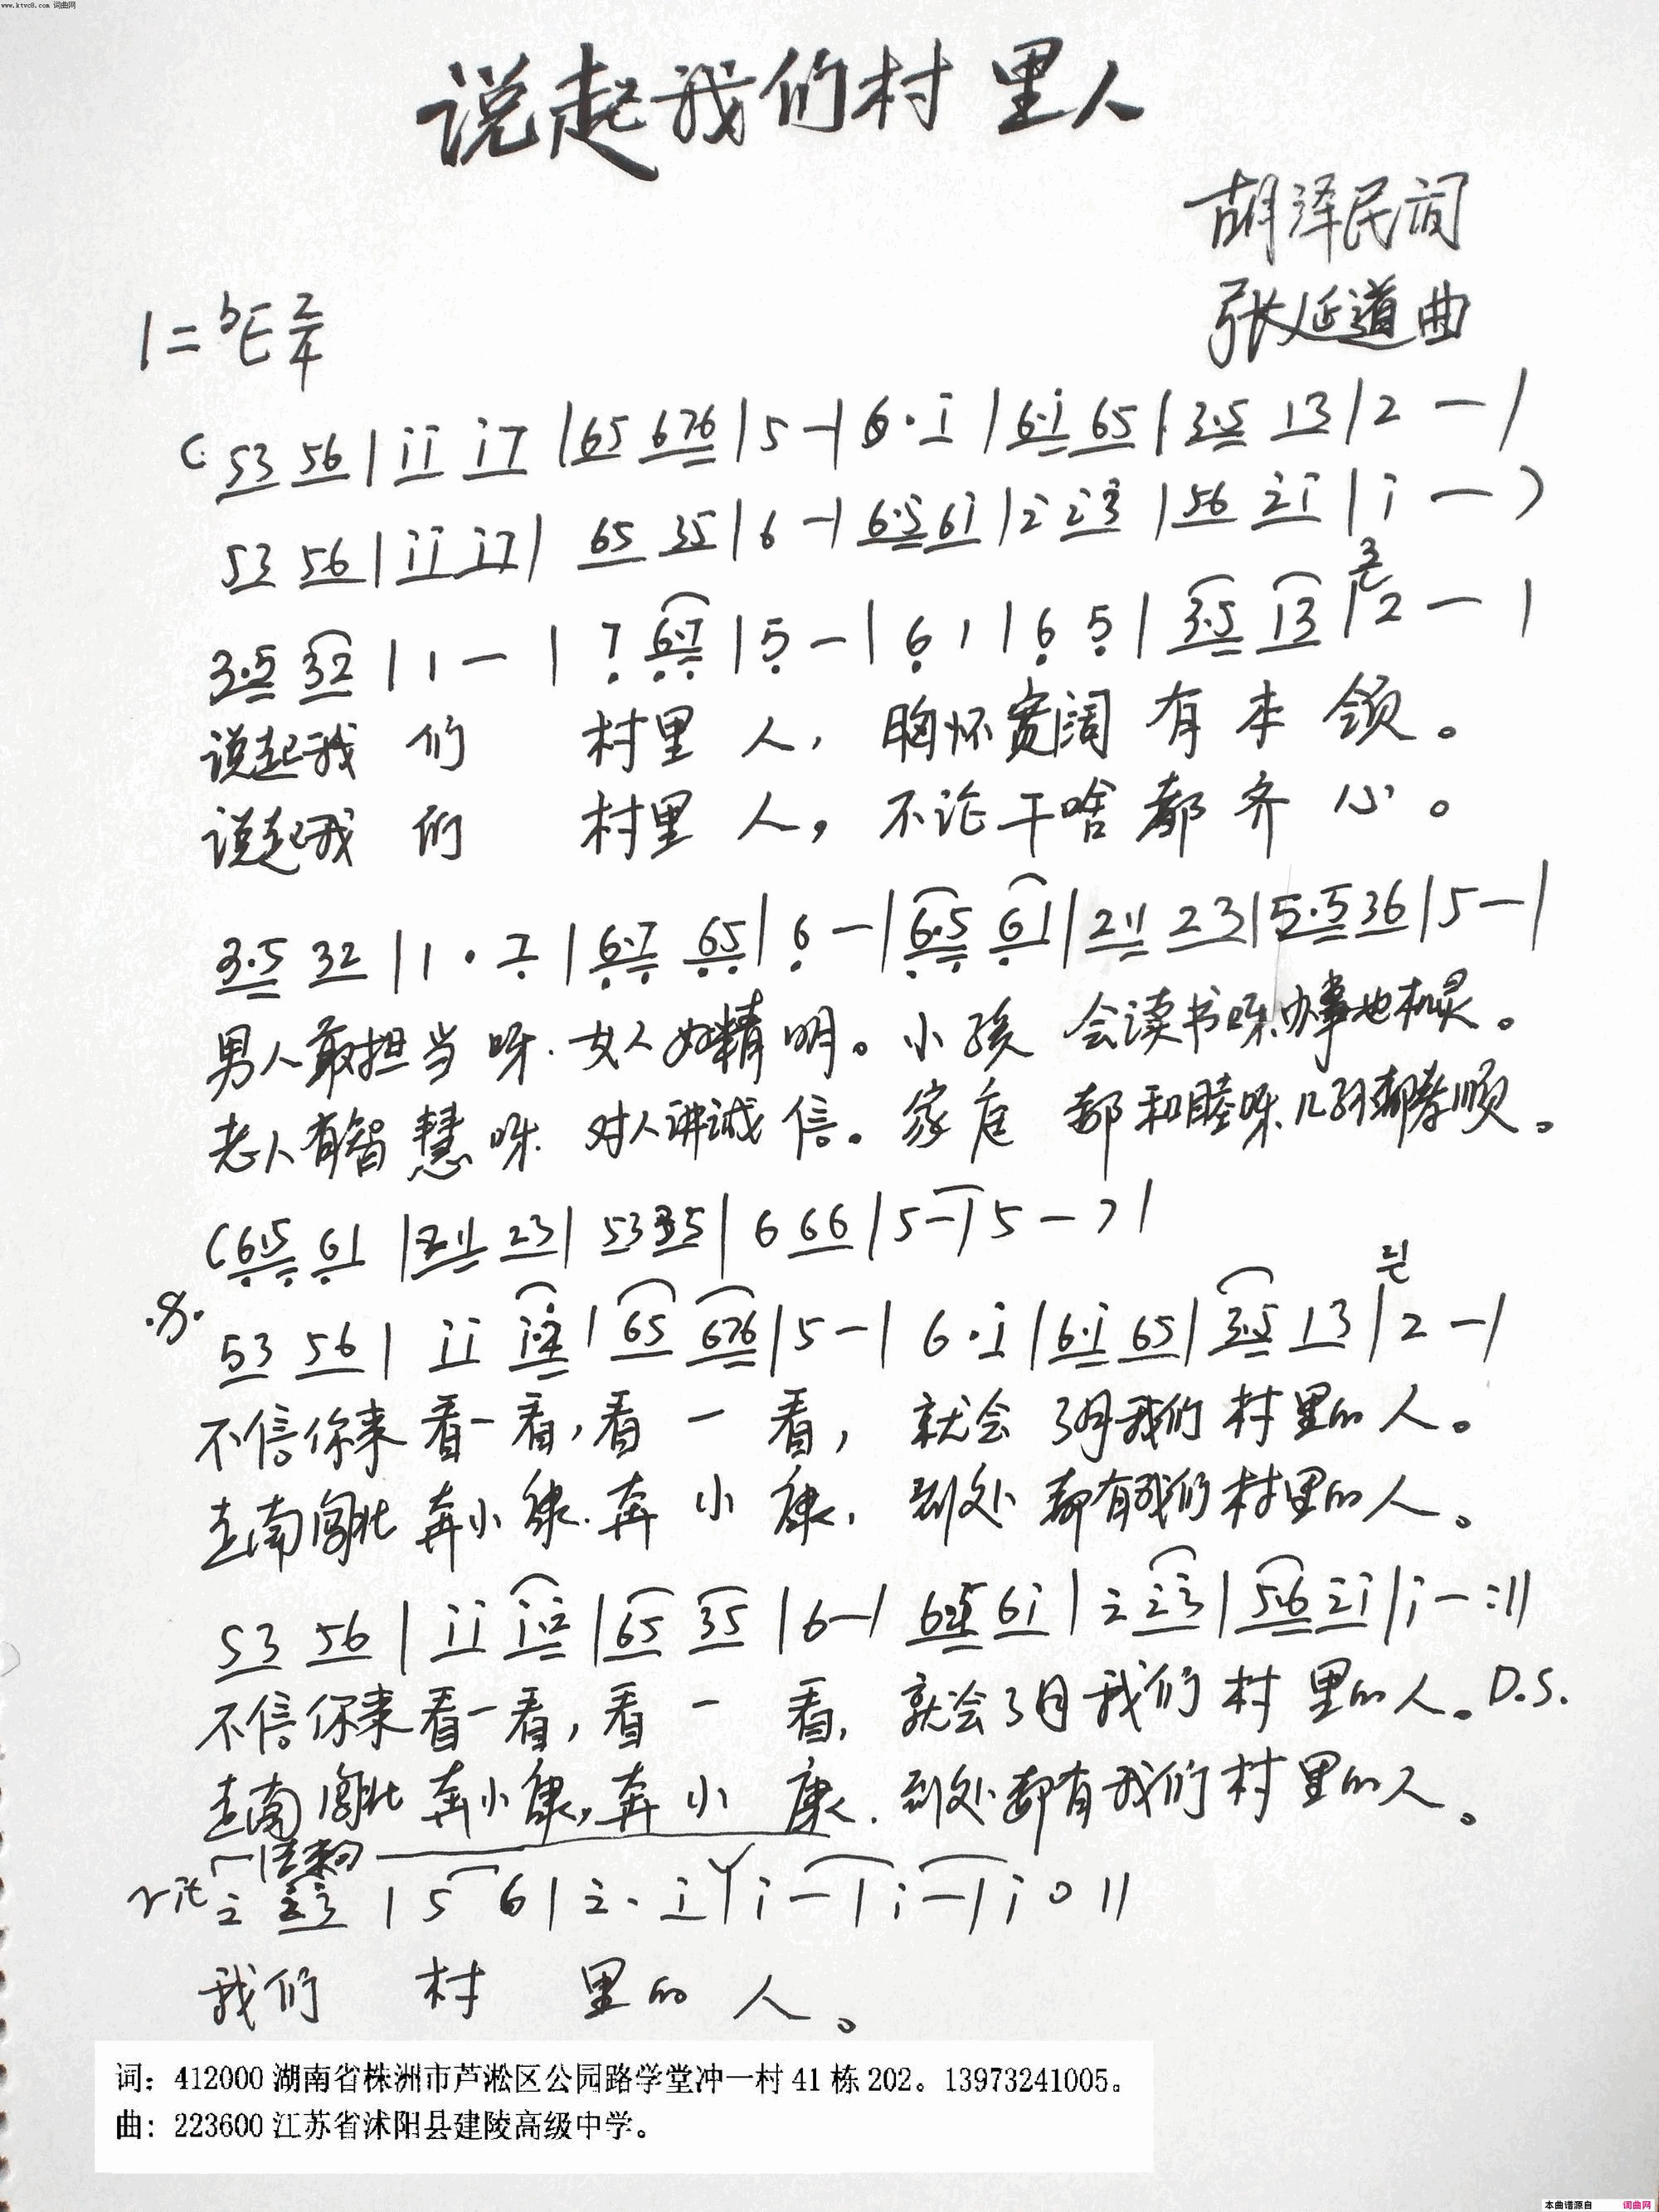 www.ktvc8.com 词曲网
说起我们村里人
胡泽民词
张延道曲
1=bE 2/4
(53 56 | i i i 7 | 65 676 | 5 - | 6· i | 6·i 65 | 3·5 13 | 2 - |
53 56 | i i i 7 | 65 35 | 6 - | 6·5 6i | 2 23 | 56 2i | i - )
3·5 32 | 1 - | 7 6·7 | 5 - | 6 1 | 6 5 | 3·5 13 | 2 - |
说起我们 村里人,胸怀宽阔有本领。
说起我们 村里人,不论干啥都齐心。
3·5 32 | 1· 7 | 6·7 65 | 6 - | 6·5 61 | 211 23 | 5·5 36 | 5 - |
男人敢担当呀.女人好精明。小孩 会读书呀.办事也机灵。
老人有智慧呀.对人讲诚信。家庭 都和睦呀.儿孙都孝顺。
(6·5 61 | 211 23 | 53 35 | 6 66 | 5 - | 5 - ) |
53 56 | i i i·2 | 65 676 | 5 - | 6· i | 6·i 65 | 3·5 13 | 2 - |
不信你来看一看,看一看,就会了月我们村里的人。
走南闯北奔小康.奔小康,到处都有我们村里的人。
53 56 | i i i·2 | 65 35 | 6 - | 6·5 6i | 2 23 | 5·6 2i | i - :||
不信你来看一看,看一看,就会了月我们村里的人。D.S.
走南闯北奔小康,奔小康.到处都有我们村里的人。
结束句
rit 2 23 | 5 6 | 2· i | i - | i - | i 0 ||
我们 村 里的人。
词:412000 湖南省株洲市芦淞区公园路学堂冲一村 41 栋 202。13973241005。
曲:223600 江苏省沭阳县建陵高级中学。
本曲谱源自 词曲网